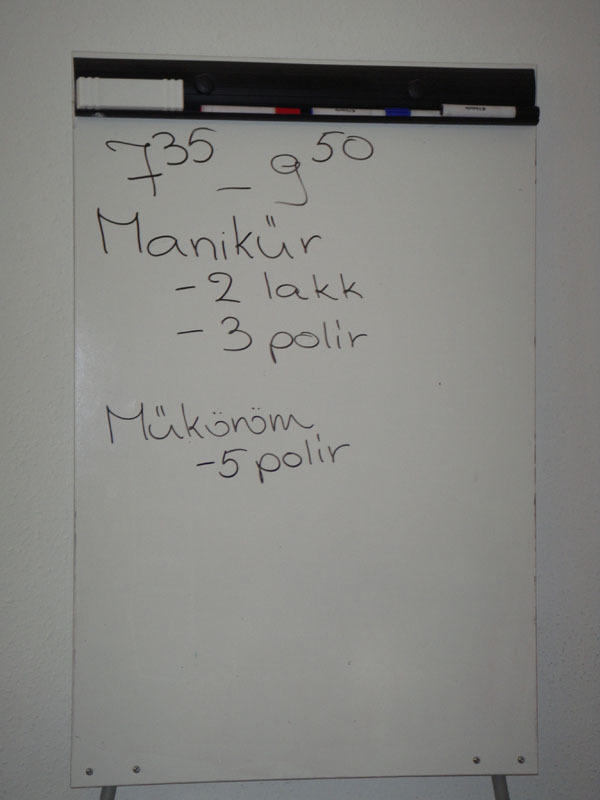 7³⁵ - 9⁵⁰
Manikür
- 2 lakk
- 3 polir
Müköröm
- 5 polir